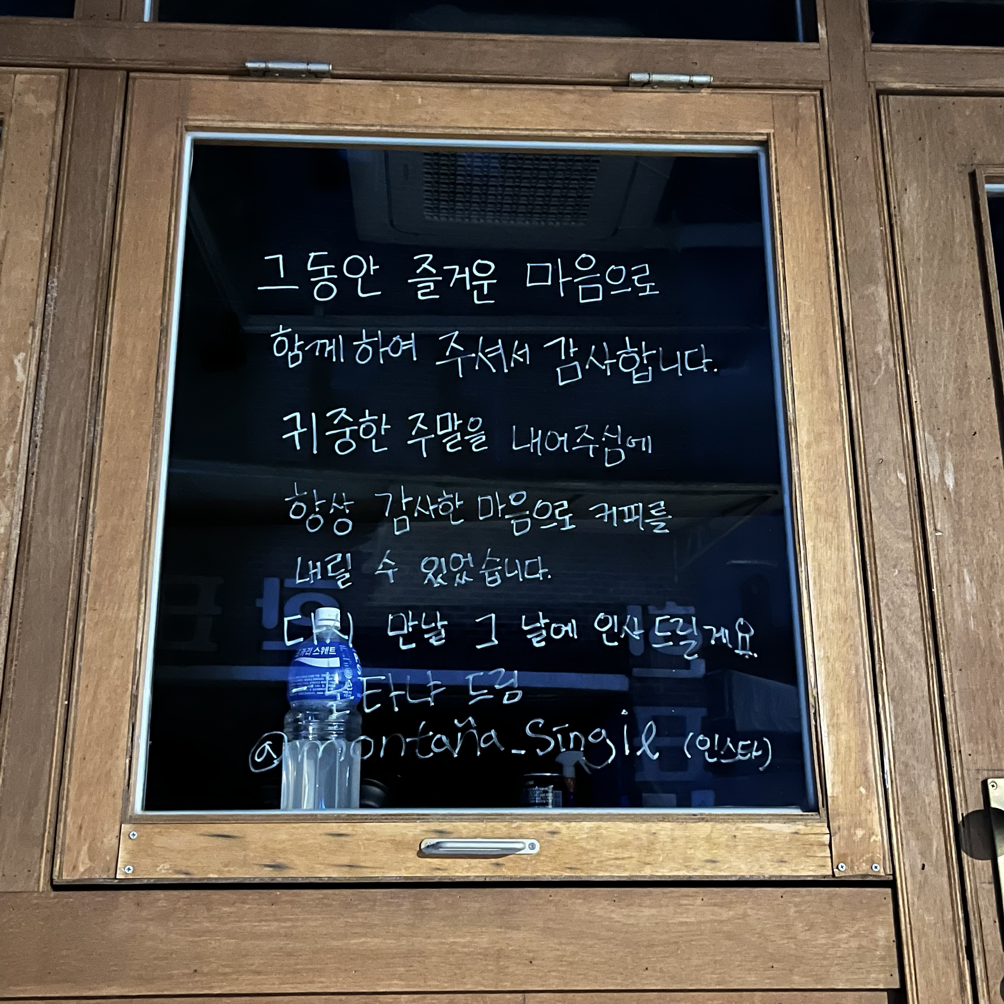 그동안 즐거운 마음으로
함께하여 주셔서 감사합니다.
귀중한 주말을 내어주심에
항상 감사한 마음으로 커피를
내릴 수 있었습니다.
다시 만날 그 날에 인사드릴게요.
-몬타냐 드림
@montaña_Singil (인스타)
포카리스웨트